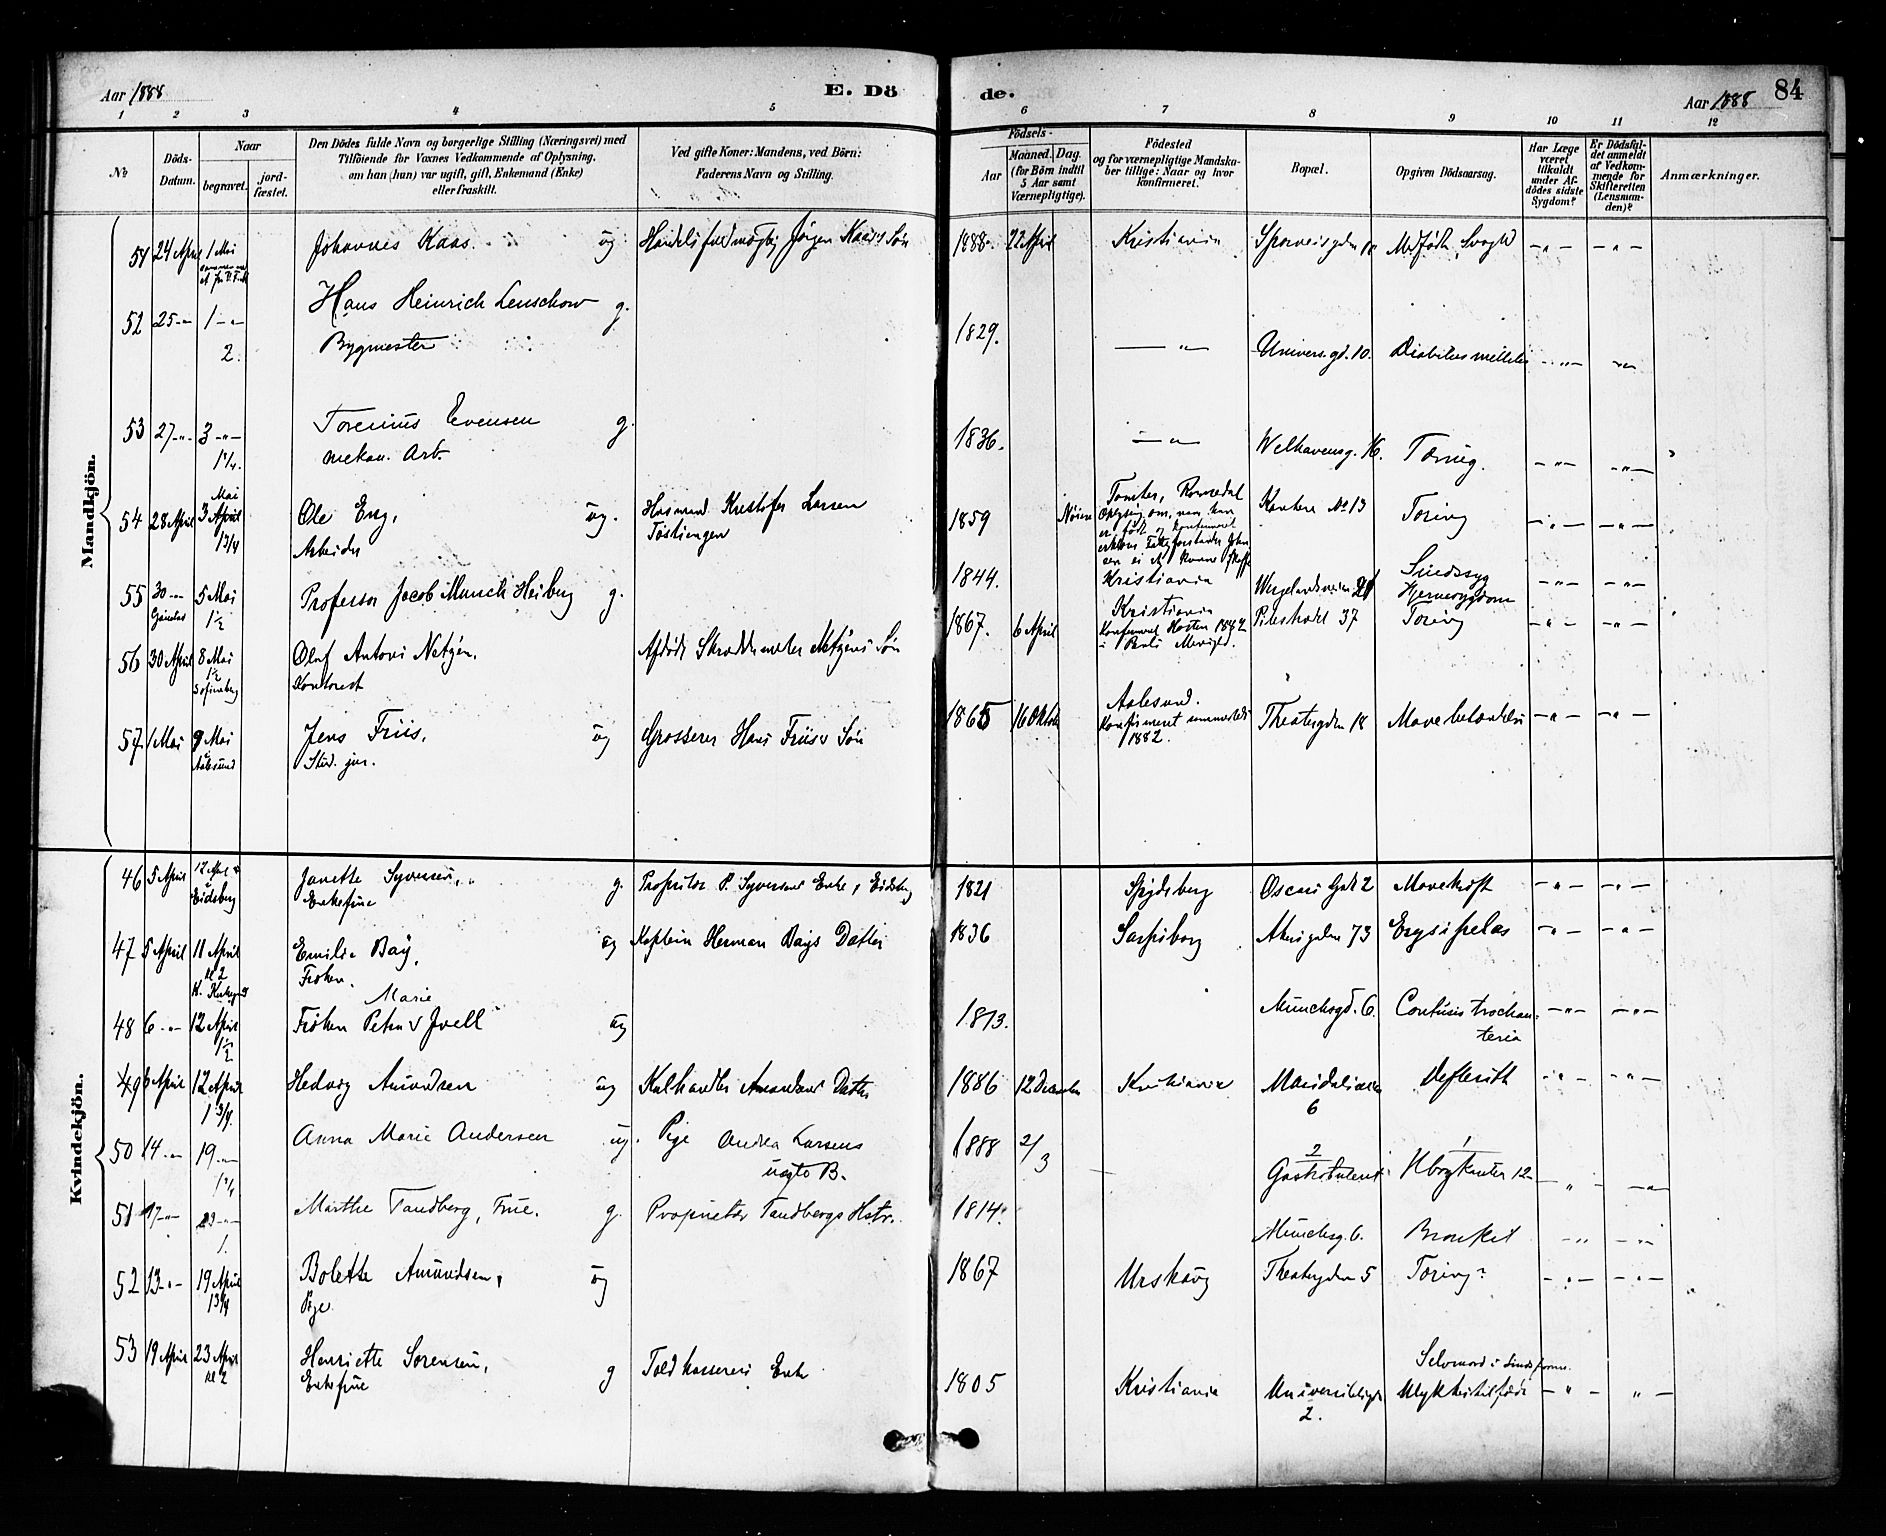 Aar 1888
E. Dö
de.
Aar 1888
84
1 2 3 4 5 6 7 8 9 10 11 12
No
Döds-Datum.
Naar
begravet.
jord-fæstet.
Den Dödes fulde Navn og borgerlige Stilling (Næringsvei) med
Tilföiende for Voxnes Vedkommende af Oplysning,
om han (hun) var ugift, gift, Enkemand (Enke)
eller fraskilt.
Ved gifte Koner: Mandens, ved Börn:
Faderens Navn og Stilling.
Födsels-
Aar
Maaned. Dag.
(for Börn indtil
5 Aar samt
Værnepligtige).
Födested
og for værnepligtige Mandska-
ber tillige: Naar og hvor
konfirmeret.
Bopæl.
Opgiven Dödsaarsag.
Har Læge
været
tilkaldt
under Af-
dödes sidste
Sygdom?
Er Dödsfal-
det anmeldt
af Vedkom-
mende for
Skifteretten
(Lensman-
den)?
Anmærkninger.
Mandkjön.
51 24 April 1 Mai Johannes Kaas ug Handelsfuldmægtig Jörgen Kaas's Sön 1888 22 April Kristiania Medfödt Svaghd -"- -"-
52 25 -"- 1 -"- Hans Heinrich Lenschow g. 1829. -"- Univers.gd. 10. Diabetes mellitus -"- -"-
2. Bygmester
53 27 -"- 3 -"- Torinius Evensen g. 1836. -"- Welhavensg. 16. Tæring. -"- -"-
mekan. Arb.
54 28 April 3 April Ole Eng, ug. Husmand Kristofer Larsen 1859 Tomter, Romedal No 13 Tæring -"- -"-
Mai
1 3/4 Arbeider
55 30 -"- 5 Mai Professor Jacob Munch Heiberg g. 1844. Kristiania Wergelandsveien Sindssyg -"- -"-
1½ Hjernesygdom
56 30 April 8 Mai Olaf Anton Netzén. Afdöde Skræddermester Netzéns Sön 1867. 6 April Kristiania Pilestrædet 37 Tæring -"- -"-
1½ Kontorist Konfirmeret Hösten 1882
57 1 Mai 9 Mai Jens Friis, ug Grosserer Hans Friis's Sön 1865 16 Oktober Aalesund. Theatergaden 18 Mavebetændelse -"- -"-
Aalesund Stud. jur. Konfirmeret 1882.
Kvindekjön.
46 5 April 12 April Janette Syversen, g. Proprietær P. Syversens Enke, Eidsberg 1821 Spydeberg Oscars Gade 2 Mavekræft -"- -"-
Eidsberg Enkefrue
47 5 April 11 April Emilie Bay, ug Kaptein Herman Bays Datter 1836 Sarpsborg Akersgaden 73 Erysipelas -"- -"-
kl 2 Fröken.
48 6 -"- 12 April Fröken Petra Marie Juell ug 1813. Munchsgd. 6. Contusis trochan- -"- -"-
1½ teria
49 6 April 12 April Hedvig Amundsen ug Kulhandler Amundsens Datter 1886 12 December Kristiania Maridalsveien Defterith -"- -"-
1 3/4. 6
50 14 -"- 19 -"- Anna Marie Andersen ug. Pige Andrea Larsens 1888 2/3 -"- -"-
uægte B.
51 17 -"- 23 -"- Marthe Tandberg, Frue. g. Proprietær Tandbergs Hstr. 1814. Munchsg. 6. Bronkit -"- -"-
1.
52 13 -"- 19 April Bolette Amundsen, ug 1867 Urskoug Theatergaden 5 Tæring -"- -"-
1 3/4 Pige
53 19 April 23 April Henriette Sörensen, g Toldkasserers Enke 1805 Kristiania Universitetsgd. Selvmord i Sindsforvir. -"- -"-
kl 2 Enkefrue 2. Ulykkestilfælde